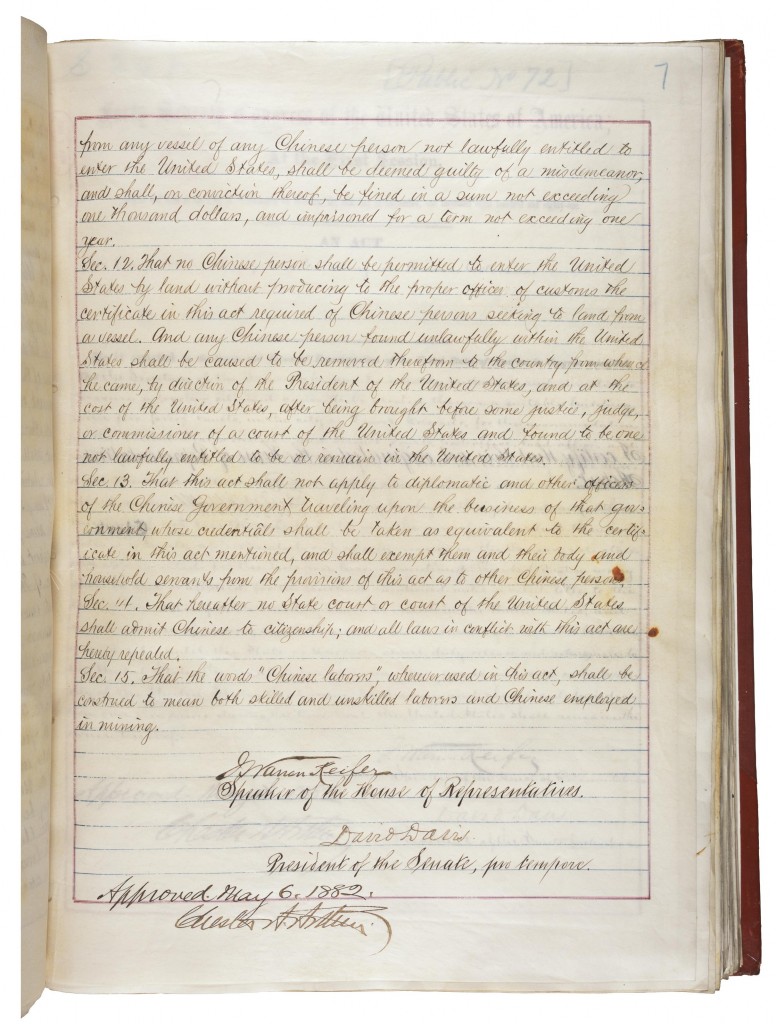 7
from any vessel of any Chinese person not lawfully entitled to
enter the United States, shall be deemed guilty of a misdemeanor,
and shall, on conviction thereof, be fined in a sum not exceeding
one thousand dollars, and imprisoned for a term not exceeding one
year.
Sec. 12. That no Chinese person shall be permitted to enter the United
States by land without producing to the proper officer of customs the
certificate in this act required of Chinese persons seeking to land from
a vessel. And any Chinese person found unlawfully within the United
States shall be caused to be removed therefrom to the country from whence
he came, by direction of the President of the United States, and at the
cost of the United States, after being brought before some justice, judge,
or commissioner of a court of the United States and found to be one
not lawfully entitled to be or remain in the United States.
Sec. 13. That this act shall not apply to diplomatic and other officers
of the Chinese Government traveling upon the business of that gov-
ernment, whose credentials shall be taken as equivalent to the certif-
icate in this act mentioned, and shall exempt them and their body and
household servants from the provisions of this act as to other Chinese persons.
Sec. 14. That hereafter no State court or court of the United States
shall admit Chinese to citizenship; and all laws in conflict with this act are
hereby repealed.
Sec. 15. That the words "Chinese laborers", wherever used in this act, shall be
construed to mean both skilled and unskilled laborers and Chinese employed
in mining.
J. Warren Keifer
Speaker of the House of Representatives.
David Davis
President of the Senate, pro tempore.
Approved May 6. 1882.
Chester A. Arthur